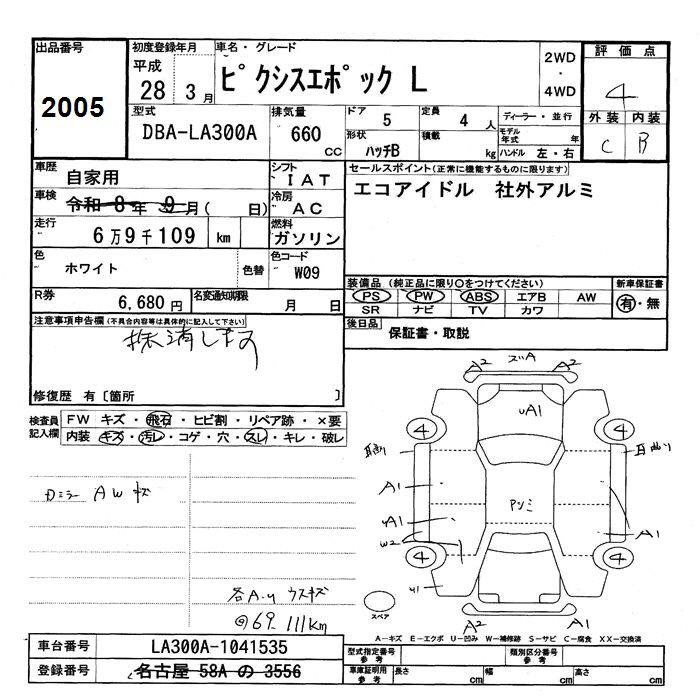 出品番号 初度登録年月 車名・グレード 2WD・4WD 評価点
2005 平成28 3月 ピクシスエポック L 4
型式 排気量 ドア 定員 ディーラー・並行 外装 内装
DBA-LA300A 660cc 5 4人 モデル年式 年 C B
形状 積載 ハンドル 左・右
ハッチB kg
車歴 自家用 シフト IAT セールスポイント(正常に機能するものに限ります)
車検 令和8年9月(日) 冷房 AC エコアイドル 社外アルミ
走行 6万9千109 km 燃料 ガソリン
色 ホワイト 色替 色コード W09
装備品(純正品に限り○をつけてください) 新車保証書
PS PW ABS エアB AW 有・無
SR ナビ TV カワ
R券 6,680円 名変通知期限 月 日
後日品 保証書・取説
注意事項申告欄(不具合内容等は具体的に記入して下さい)
抹消します
修復歴 有〔箇所 〕
検査員記入欄 FW キズ・飛石・ヒビ割・リペア跡・×要
内装 キズ・汚レ・コゲ・穴・スレ・キレ・破レ
A2 ズA A2
uA1
4 4
A1 アツミ
uA1 A1
w2
4 4
u1
A2 A1
スペア
AWキズ
各A・u ウスキズ
@69.111km
A－キズ E－エクボ U－凹み W－補修跡 S－サビ C－腐食 XX－交換済
車台番号 LA300A-1041535 型式指定番号 参考 類別区分番号 参考
登録番号 名古屋 58A の 3556 車庫証明用 参考 長さ cm 幅 cm 高さ cm